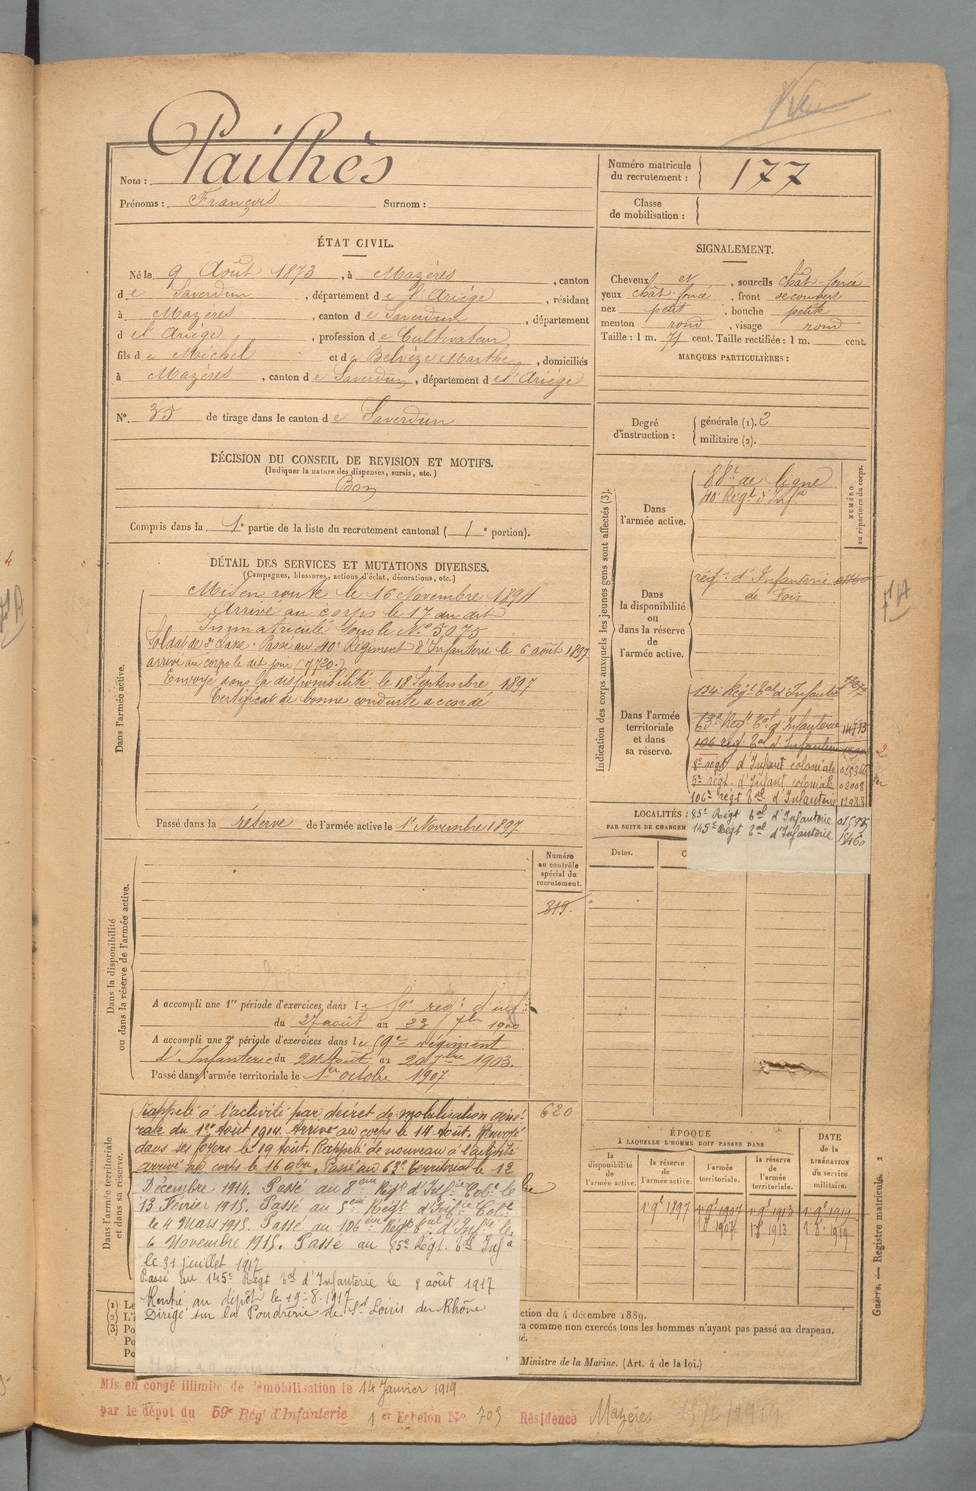 Nom : Pailhès
Prénoms : François Surnom :
Numéro matricule du recrutement : 177
Classe de mobilisation :
ÉTAT CIVIL.
Né le 9 Août 1873, à Mazères, canton
de Saverdun, département de l'Ariège, résidant
à Mazères, canton de Saverdun, département
d et Ariège, profession de Cultivateur
fils de Michel et de Belvèze Marthe, domiciliés
à Mazères, canton de Saverdun, département de l'Ariège
N° 35 de tirage dans le canton de Saverdun
SIGNALEMENT.
Cheveux et, sourcils chât. foncé
yeux chât. foncé, front découvert
nez petit, bouche petite
menton rond, visage rond
Taille : 1 m. 74 cent. Taille rectifiée : 1 m. cent.
MARQUES PARTICULIÈRES :
Degré d'instruction : générale (1). 2
militaire (2).
DÉCISION DU CONSEIL DE REVISION ET MOTIFS.
(Indiquer la nature des dispenses, sursis, etc.)
Bon
Compris dans la 1e partie de la liste du recrutement cantonal ( 1e portion).
DÉTAIL DES SERVICES ET MUTATIONS DIVERSES.
(Campagnes, blessures, actions d'éclat, décorations, etc.)
Dans l'armée active.
Mis en route le 16 Novembre 1894
Arrivé au corps le 17 du dit
Immatriculé sous le N° 5075
Soldat de 2e classe. Passé au 40e Régiment d'Infanterie le 6 août 1897
arrivé au corps le dit jour (4720.)
Envoyé dans la disponibilité le 18 Septembre 1897
Certificat de bonne conduite accordé
Passé dans la réserve de l'armée active le 1er Novembre 1897
Indication des corps auxquels les jeunes gens sont affectés (3).
NUMÉRO au répertoire du corps.
Dans l'armée active.
88e de ligne
40e Régt d'Infie
Dans la disponibilité ou dans la réserve de l'armée active.
régt d'Infanterie
de Foix
Dans l'armée territoriale et dans sa réserve.
134e Régt Eal d'Infanterie
63e Régt Eal d'Infanterie 14773
106 régt Eal d'Infanterie
8e régt d'Infant coloniale 025366
5e régt d'Infant coloniale 02008
106e régt tal d'Infanterie 12923
85e Régt tal d'Infanterie 01575
145e Régt tal d'Infanterie 15460
LOCALITÉS
PAR SUITE DE CHANGEM
Dates. C
Dans la disponibilité ou dans la réserve de l'armée active.
Numéro au contrôle spécial du recrutement.
819.
A accompli une 1re période d'exercices dans le 59e régt d'inf
du 27 août au 23 7bre 1900
A accompli une 2e période d'exercices dans le 59e régiment
d'Infanterie du 24 Août au 20 7bre 1903.
Passé dans l'armée territoriale le 1er octobre 1907
Dans l'armée territoriale et dans sa réserve.
Rappelé à l'activité par décret de mobilisation géné- 620
rale du 1er Août 1914. Arrivé au corps le 14 Août. Renvoyé
dans ses foyers le 19 Août. Rappelé de nouveau à l'activité
arrivé au corps le 16 9bre. Passé au 63e territorial le 12
Décembre 1914. Passé au 8ème Régt d'Infie Cole le
13 Février 1915. Passé au 5ème Régt d'Infie Cole
le 4 Mars 1915. Passé au 106ème Régt tal d'Infie le
6 Novembre 1915. Passé au 85e Régt tal Infie
le 31 juillet 1917
Passé au 145e Régt tal d'Infanterie le 8 août 1917
Rentré au dépôt le 19-8-1917
Dirigé sur la Poudrerie de St Louis du Rhône
ÉPOQUE
À LAQUELLE L'HOMME DOIT PASSER DANS
la disponibilité de l'armée active. la réserve de l'armée active. l'armée territoriale. la réserve de l'armée territoriale.
DATE de la LIBÉRATION du service militaire.
1 9bre 1897 1 9bre 1907 1 9bre 1913 1 9bre 1919
1.8bre 1907 1 8 1913 1.8.1919
(1) Le
(2) L'i
(3) Po
Po
Po
ction du 4 décembre 1889.
ra comme non exercés tous les hommes n'ayant pas passé au drapeau.
Ministre de la Marine. (Art. 4 de la loi.)
Guerre. — Registre matricule. 2
Mis en congé illimité de démobilisation le 14 Janvier 1919
par le dépôt du 59e Rég d'Infanterie 1er Echelon No 703 Résidence Mazères